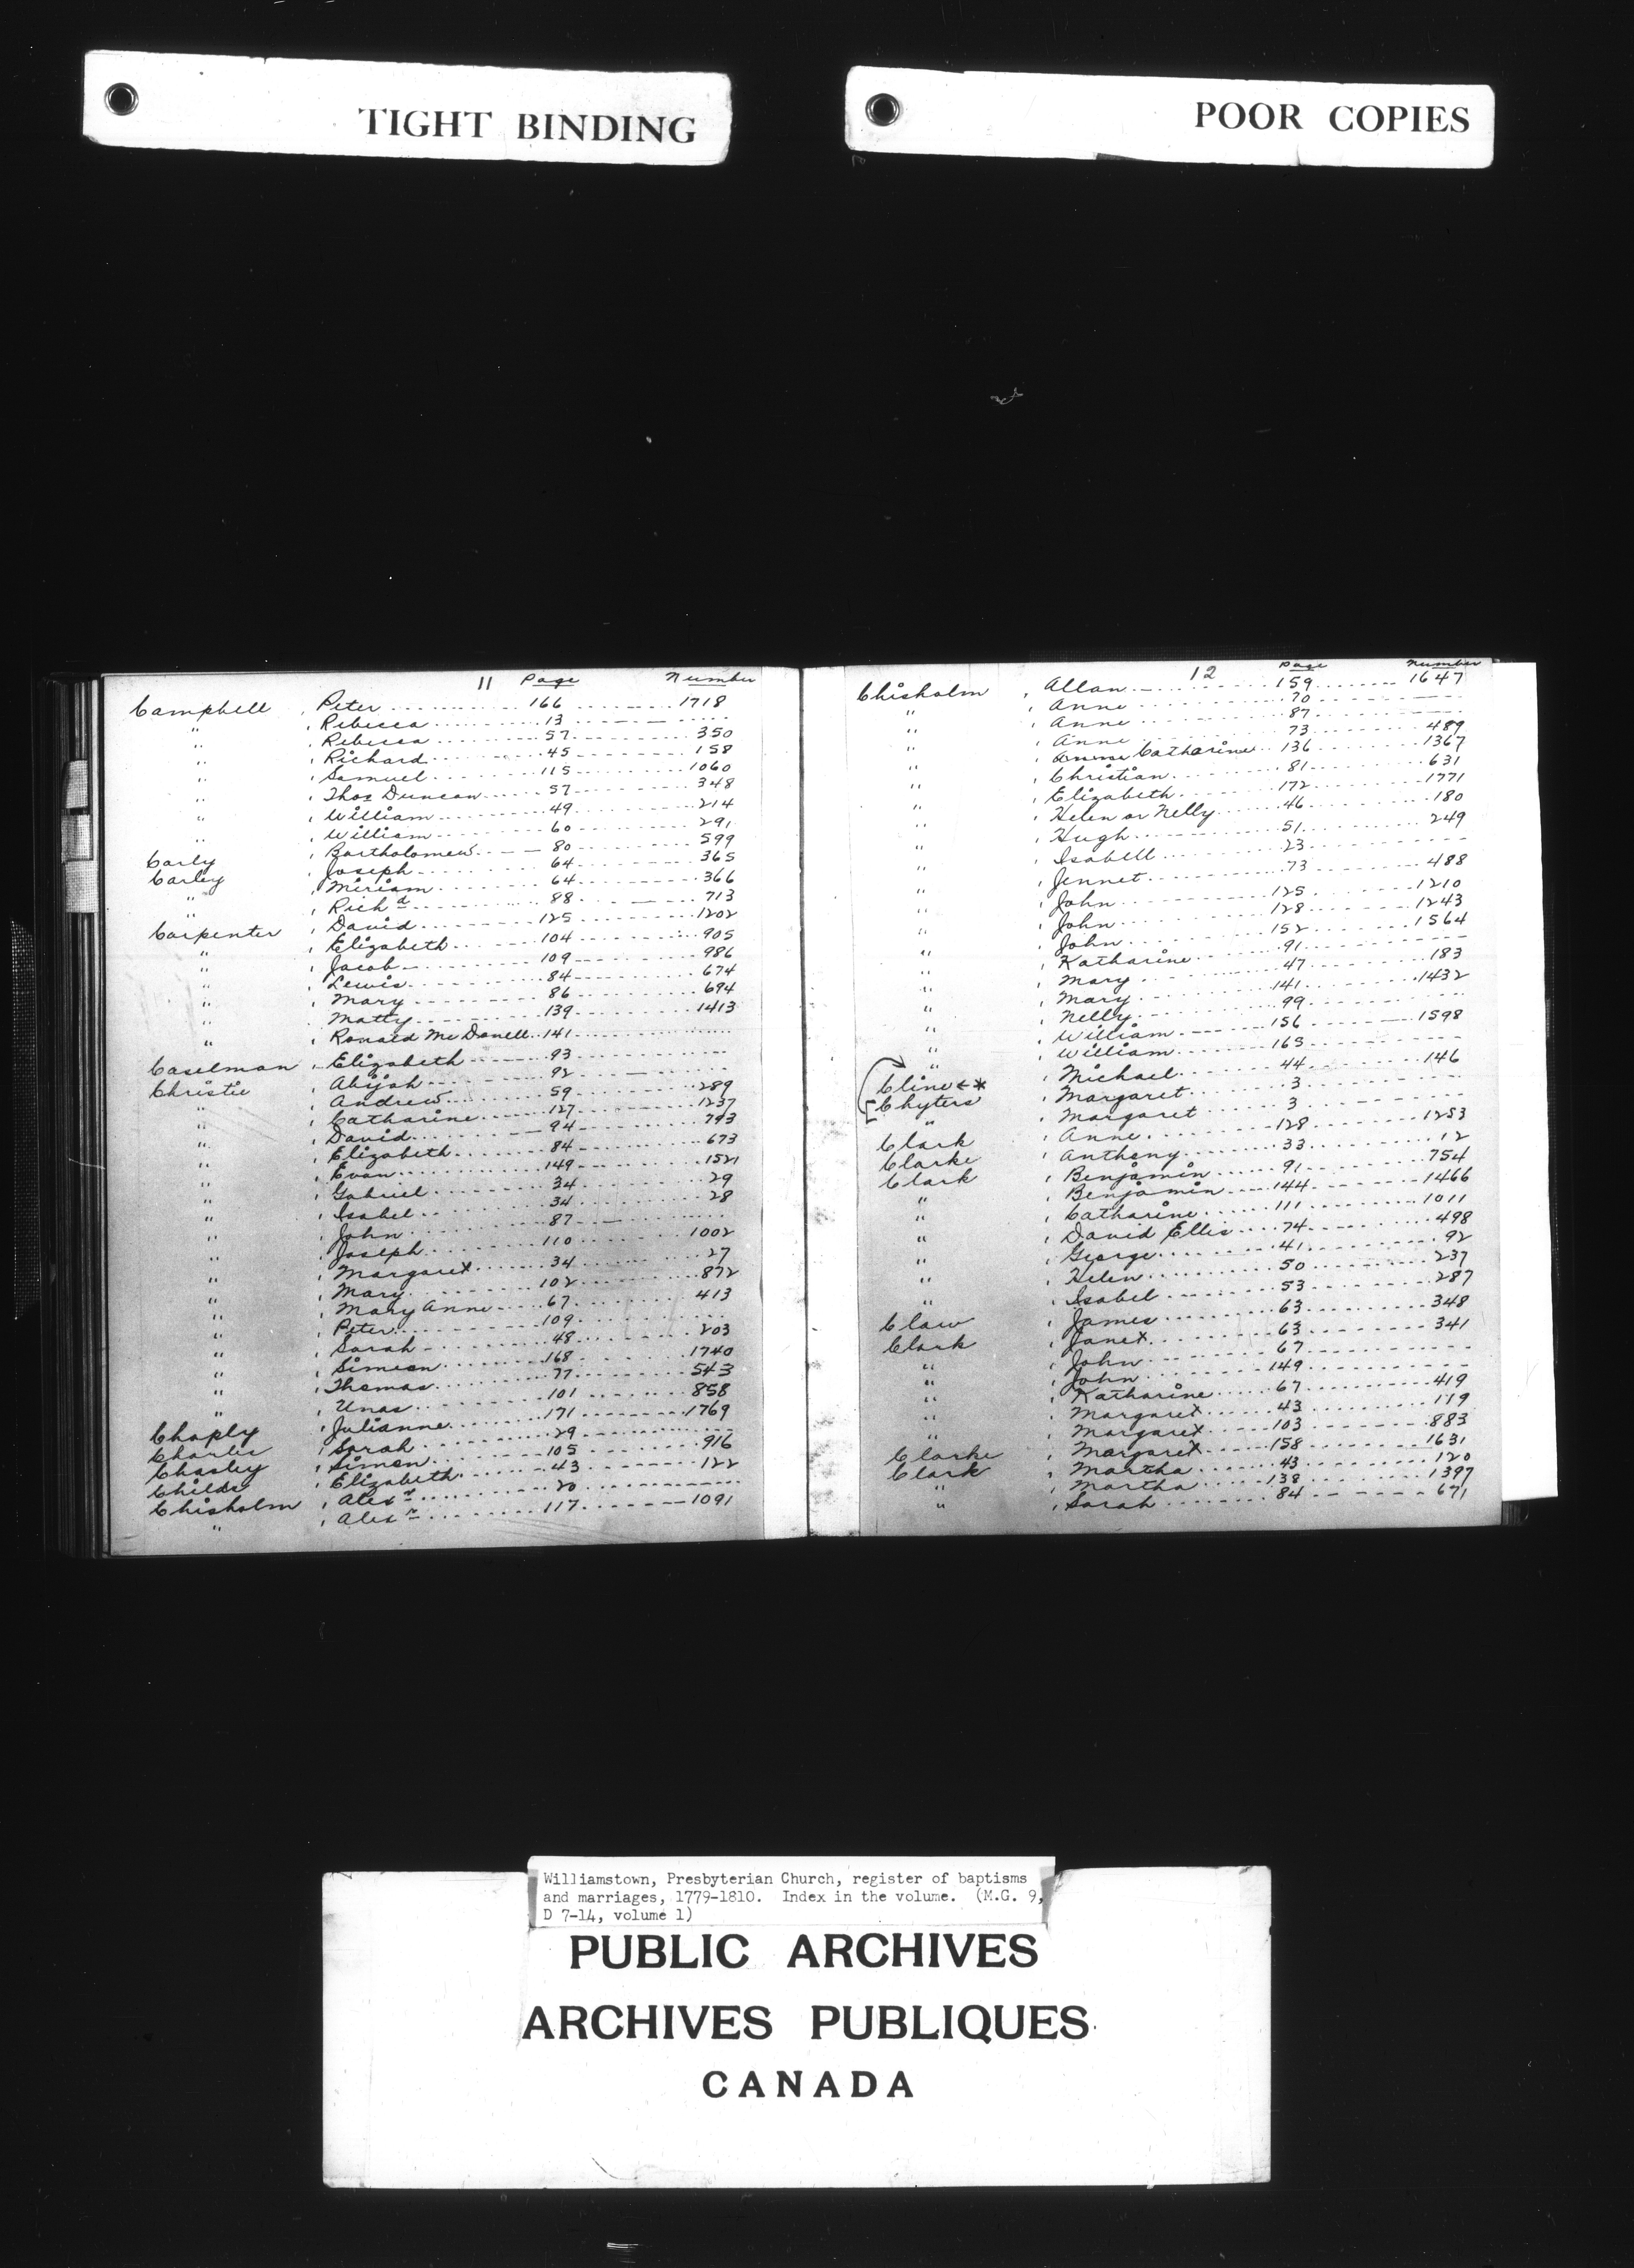 TIGHT BINDING
POOR COPIES
11 Page Number
Campbell, Peter 166 1718
", Rebecca 13
", Rebecca 57 350
", Richard 45 158
", Samuel 115 1060
", Thos Duncan 57 348
", William 49 214
", William 60 291
Carly, Bartholomew 80 599
Carley, Joseph 64 365
", Miriam 64 366
", Richd 88 713
Carpenter, David 125 1202
", Elizabeth 104 905
", Jacob 109 986
", Lewis 84 674
", Mary 86 694
", Matty 139 1413
", Ronald McDonell 141
Caselman, Elizabeth 93
Christie, Abijah 92
", Andrew 59 289
", Catharine 127 1237
", David 94 793
", Elizabeth 84 673
", Evan 149 1521
", Gabriel 34 29
", Isabel 34 28
", John 87
", Joseph 110 1002
", Margaret 34 27
", Mary 102 872
", Mary Anne 67 413
", Peter 109
", Sarah 48 203
", Simeon 168 1740
", Thomas 77 543
", Unas 101 858
Chaply, Julianne 171 1769
Charlis, Sarah 29
Chasley, Simon 105 916
Childs, Elizabeth 43 122
Chisholm, Alexr 20
", Alexr 117 1091
12 Page Number
Chisholm, Allan 159 1647
", Anne 70
", Anne 87
", Anne 73 489
", Anne Catharine 136 1367
", Christian 81 631
", Elizabeth 172 1771
", Helen or Nelly 46 180
", Hugh 51 249
", Isabell 23
", Jennet 73 488
", John 125 1210
", John 128 1243
", John 152 1564
", Katharine 91
", Mary 47 183
", Mary 141 1432
", Nelly 99
", William 156 1598
", William 165
Cline ←*, Michael 44 146
Chyters, Margaret 3
", Margaret 3
Clark, Anne 128 1253
Clarke, Anthony 33 12
Clark, Benjamin 91 754
", Benjamin 144 1466
", Catharine 111 1011
", David Ellis 74 498
", George 41 92
", Helen 50 237
", Isabel 53 287
Claw, James 63 348
Clark, Janet 63 341
", John 67
", John 149
", Katharine 67 419
", Margaret 43 119
", Margaret 103 883
Clarke, Margaret 158 1631
Clark, Martha 43 120
", Martha 138 1397
", Sarah 84 671
Williamstown, Presbyterian Church, register of baptisms
and marriages, 1779-1810. Index in the volume. (M.G. 9,
D 7-14, volume 1)
PUBLIC ARCHIVES
ARCHIVES PUBLIQUES
CANADA